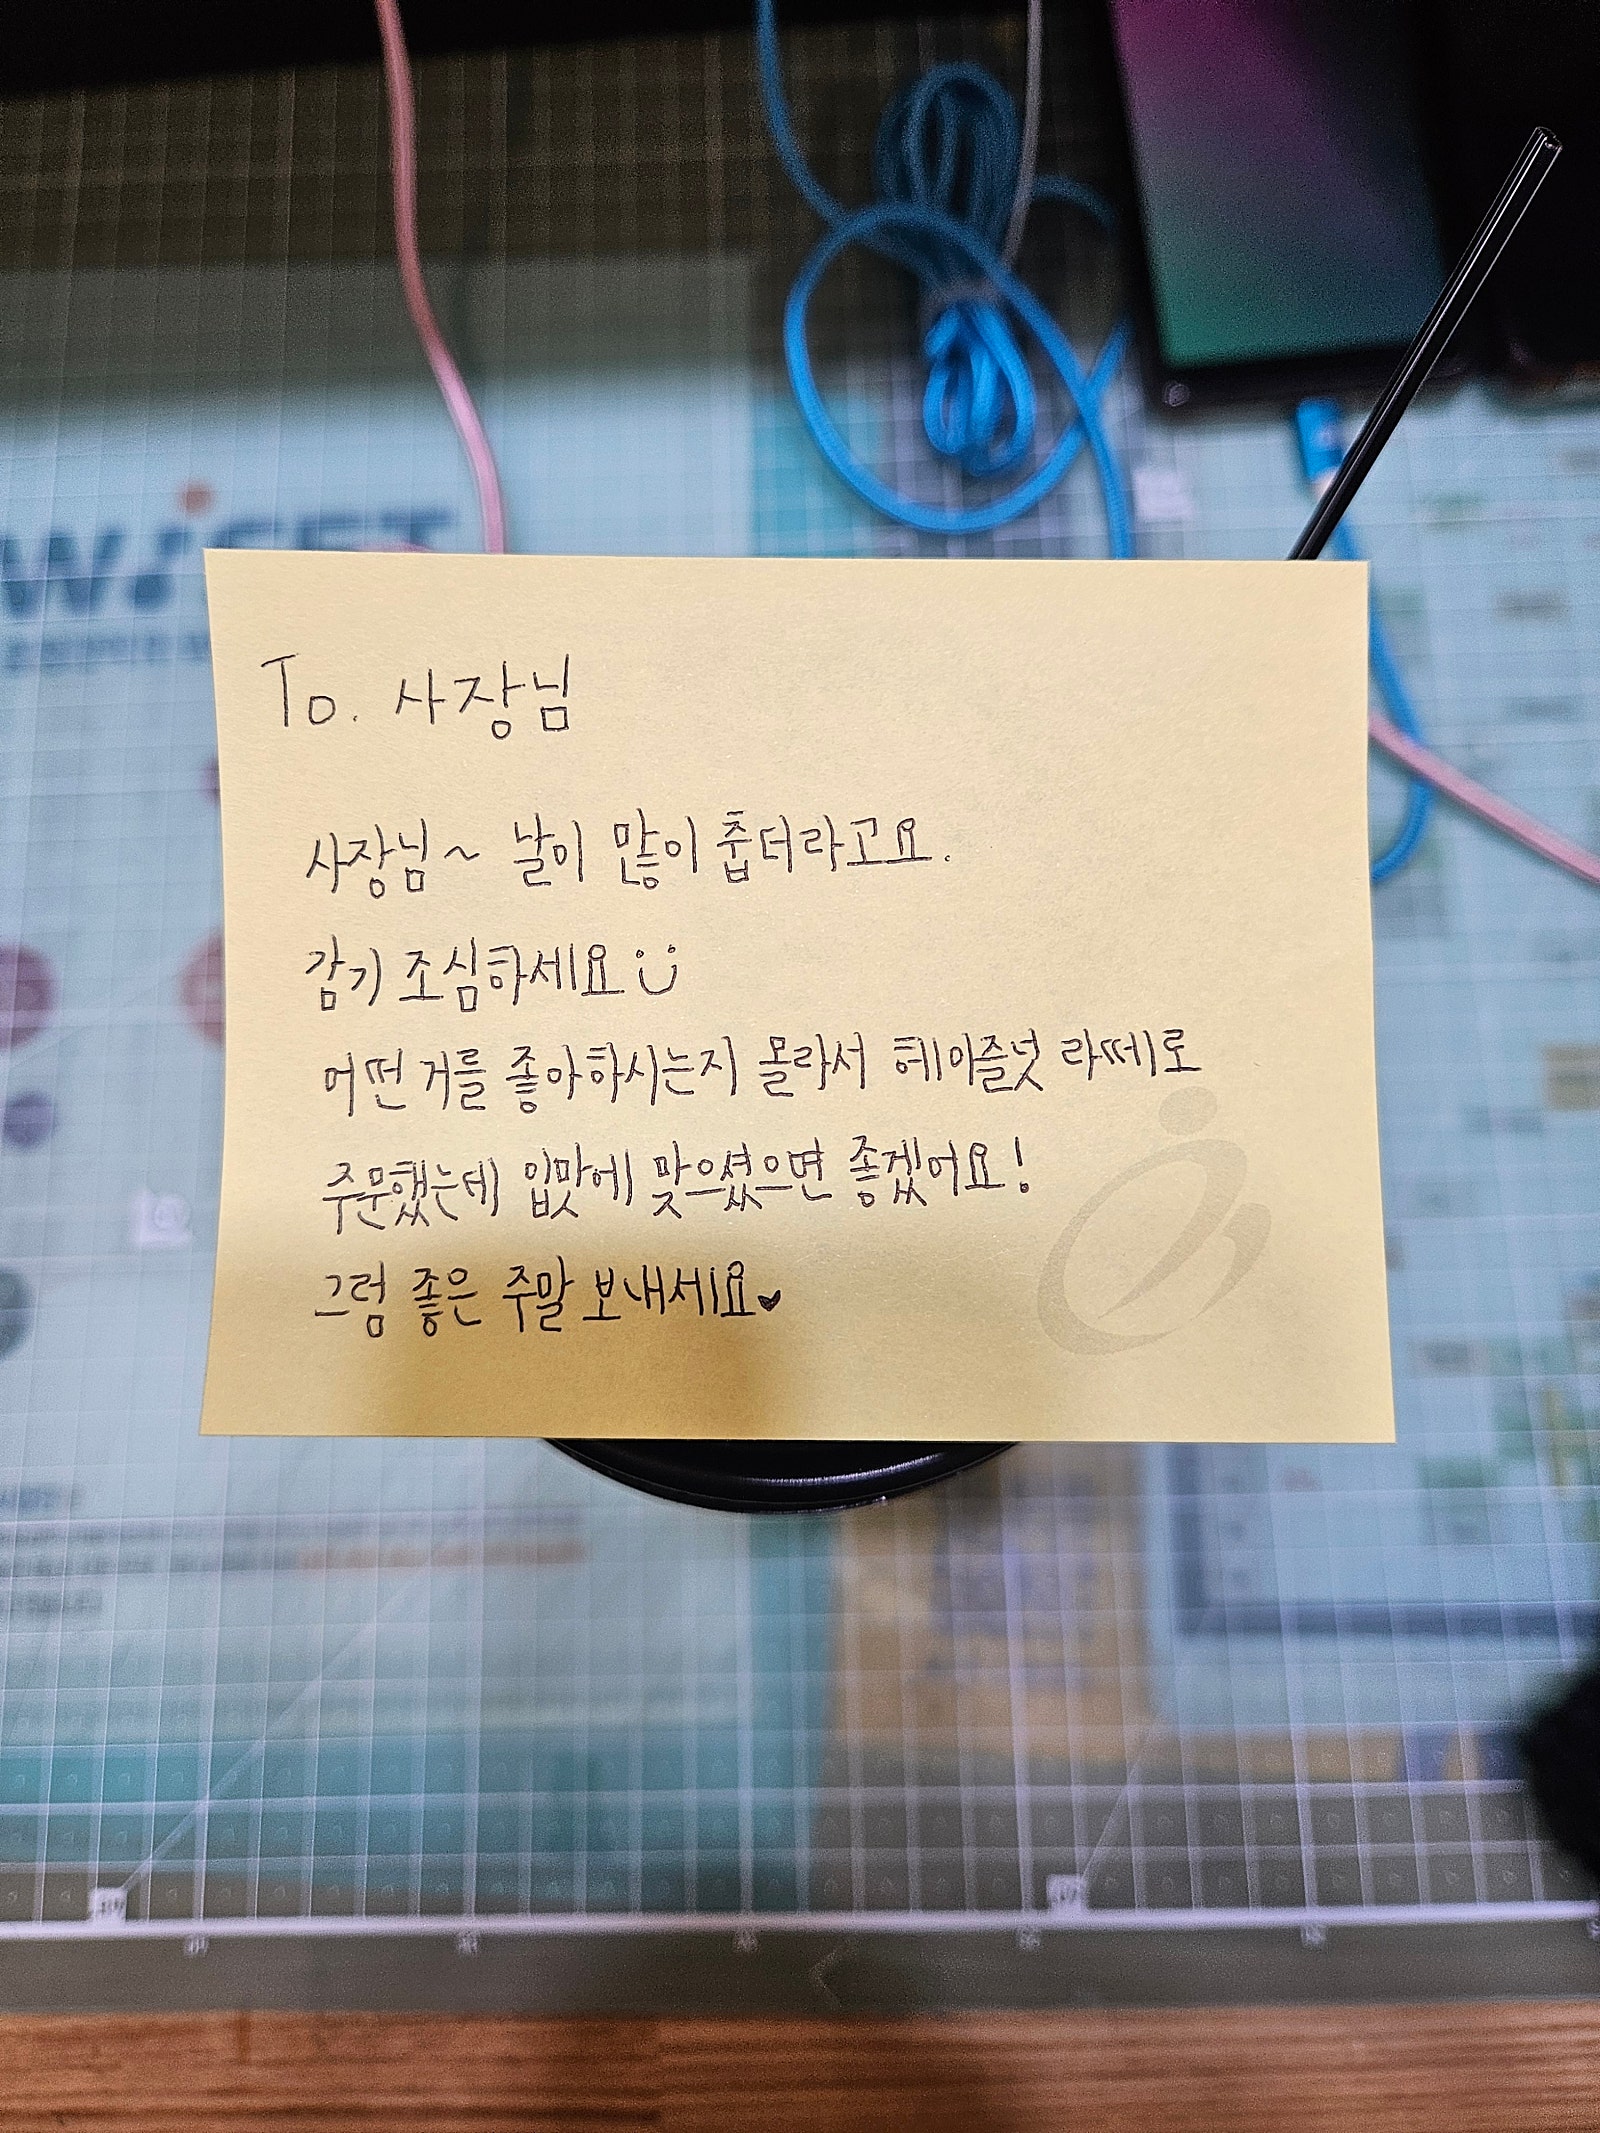 To. 사장님
사장님~ 날이 많이 춥더라고요.
감기 조심하세요 :)
어떤 거를 좋아하시는지 몰라서 헤이즐넛 라떼로
주문했는데 입맛에 맞으셨으면 좋겠어요!
그럼 좋은 주말 보내세요♥